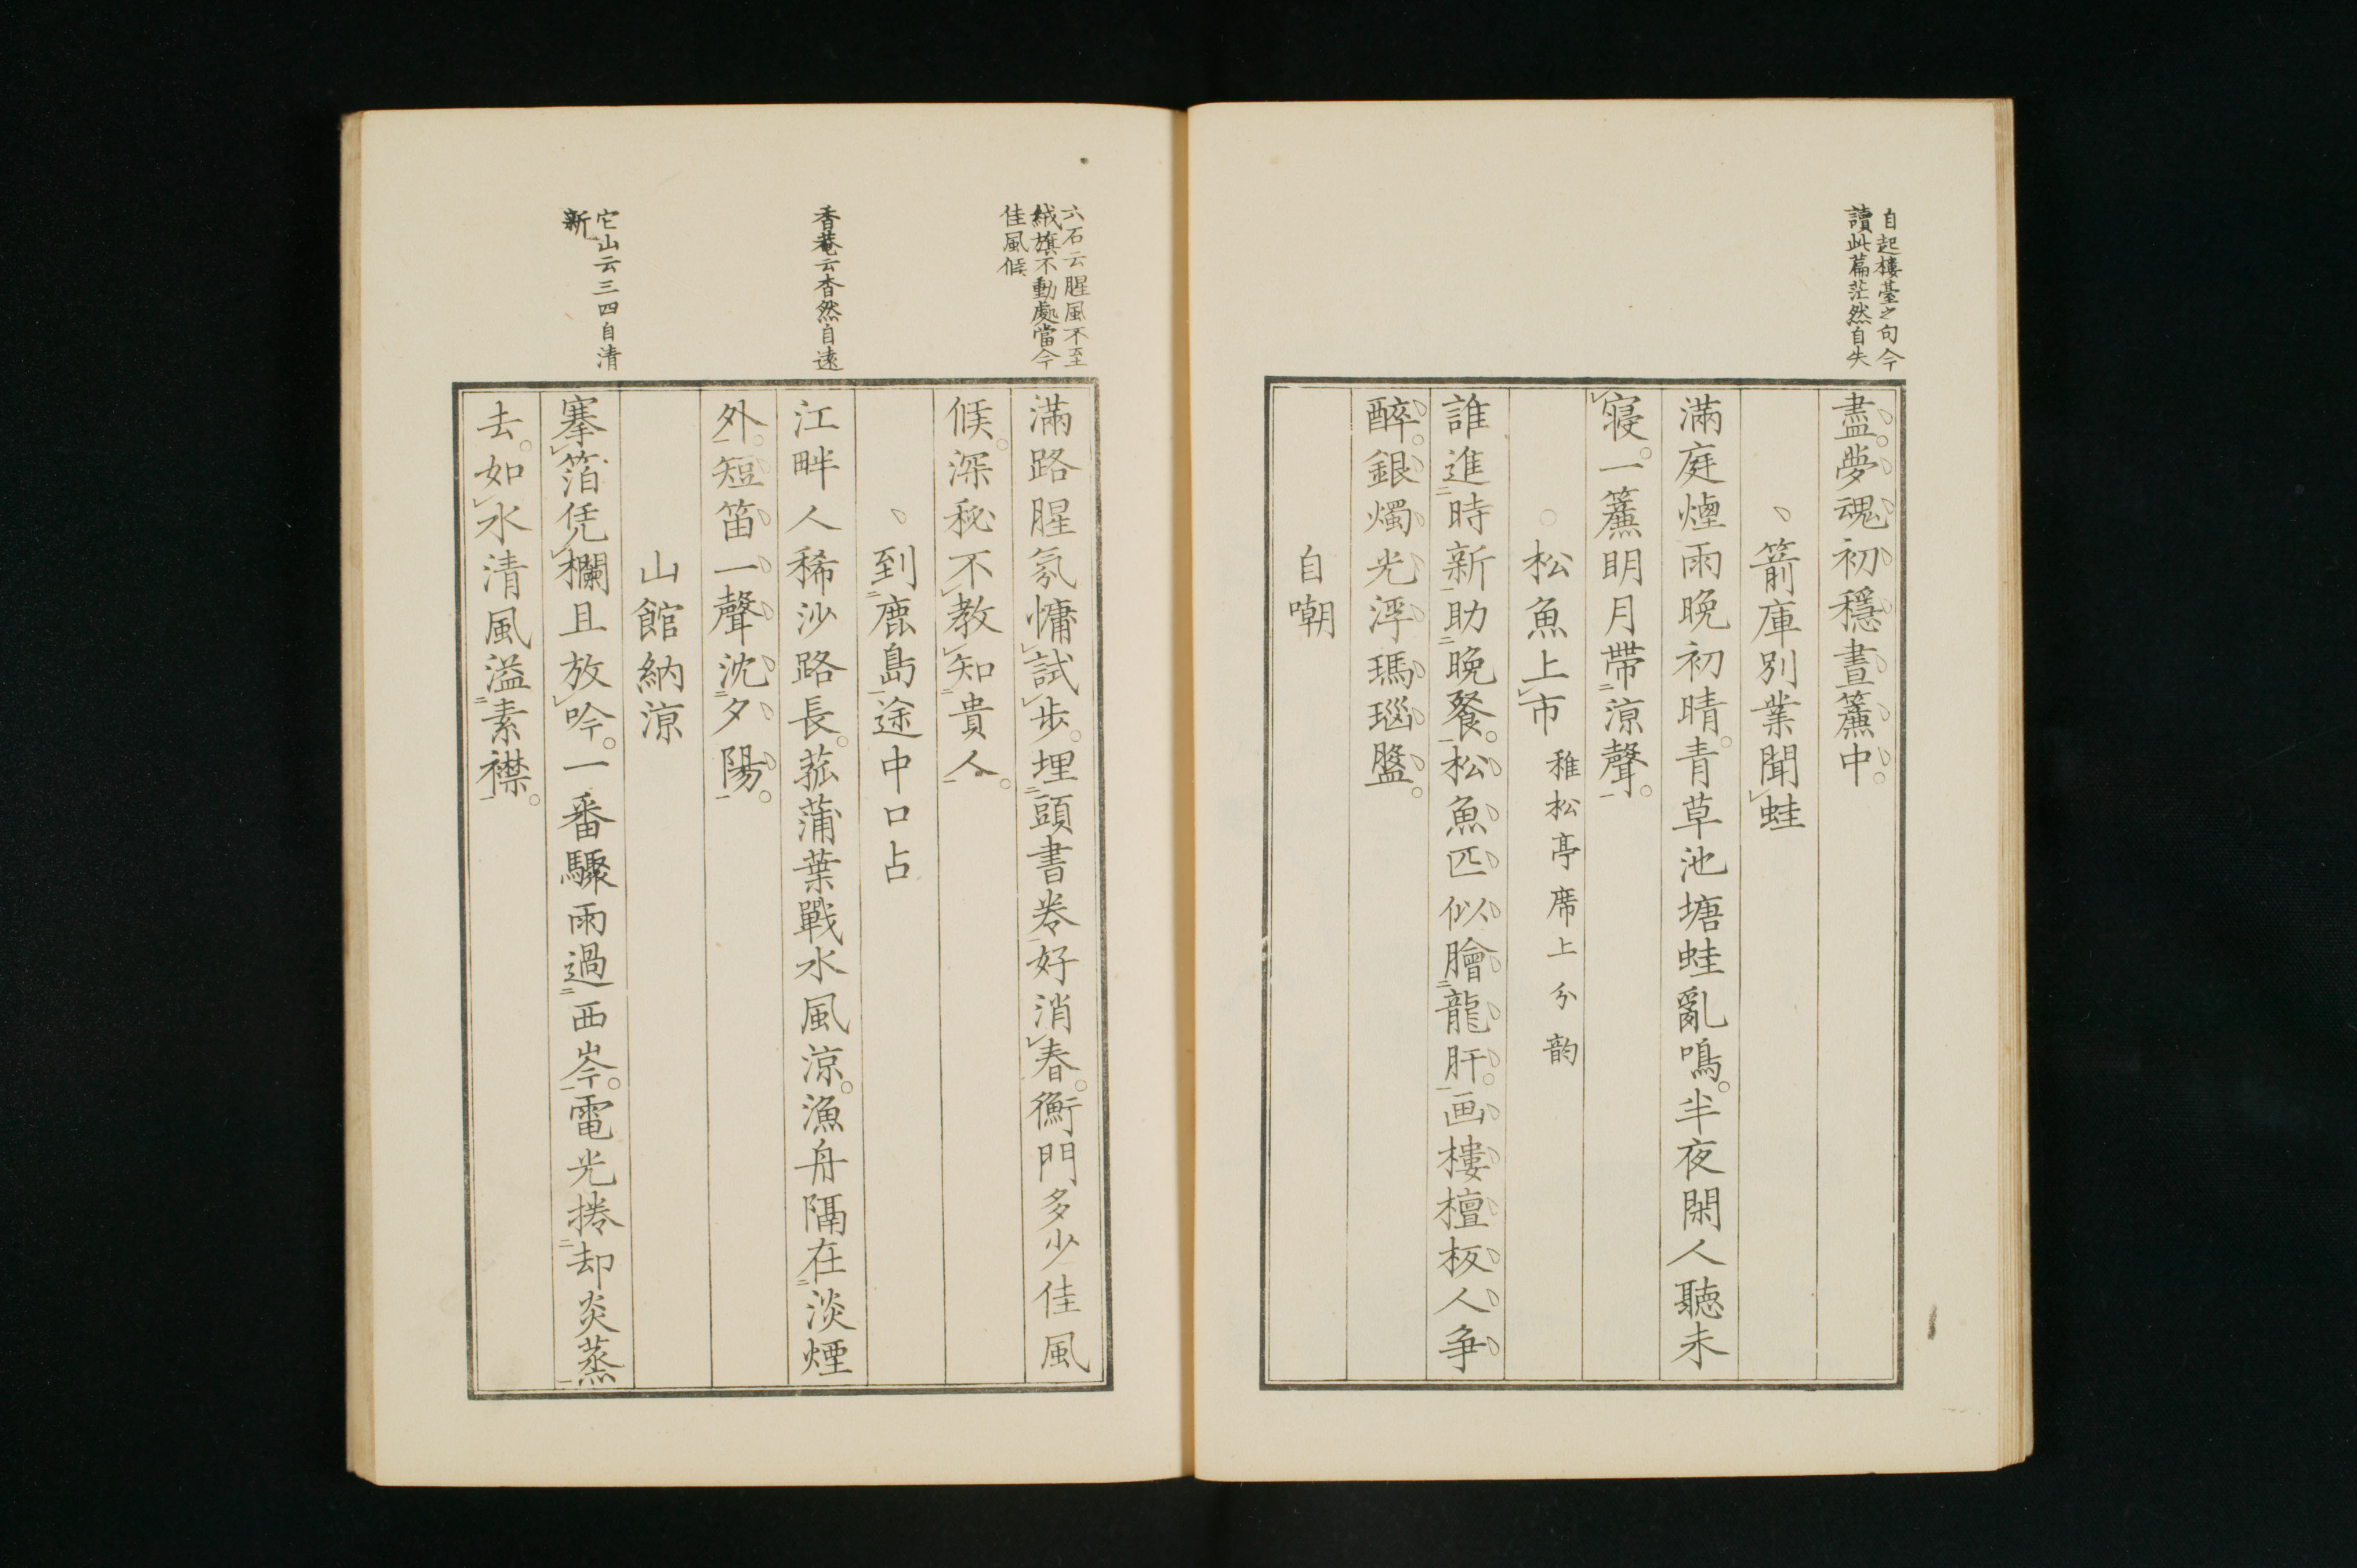 自起樓臺之句今
讀此篇茫然自失
盡。夢魂初穩晝簾中。
箭庫別業聞蛙
滿庭煙雨晩初晴。青草池塘蛙亂鳴。半夜閑人聽未
寝。一簾明月帶涼聲。
松魚上市 稚松亭席上分韵
誰進時新助晩餐。松魚匹似膾龍肝。画樓檀板人争
醉。銀燭光浮瑪瑙盤。
自嘲
六石云腥風不至
絨旗不動處當今
佳風候
滿路腥氛慵試歩。埋頭書巻好消春。衡門多少佳風
候。深秘不教知貴人。
香菴云杳然自遠
到鹿島途中口占
江畔人稀沙路長。菰蒲葉戰水風涼。漁舟隔在淡煙
外。短笛一聲沈夕陽。
山館納涼
它山云三四自清
新
搴箔凭欄且放吟。一番驟雨過西岑。電光捲却炎蒸
去。如水清風溢素襟。